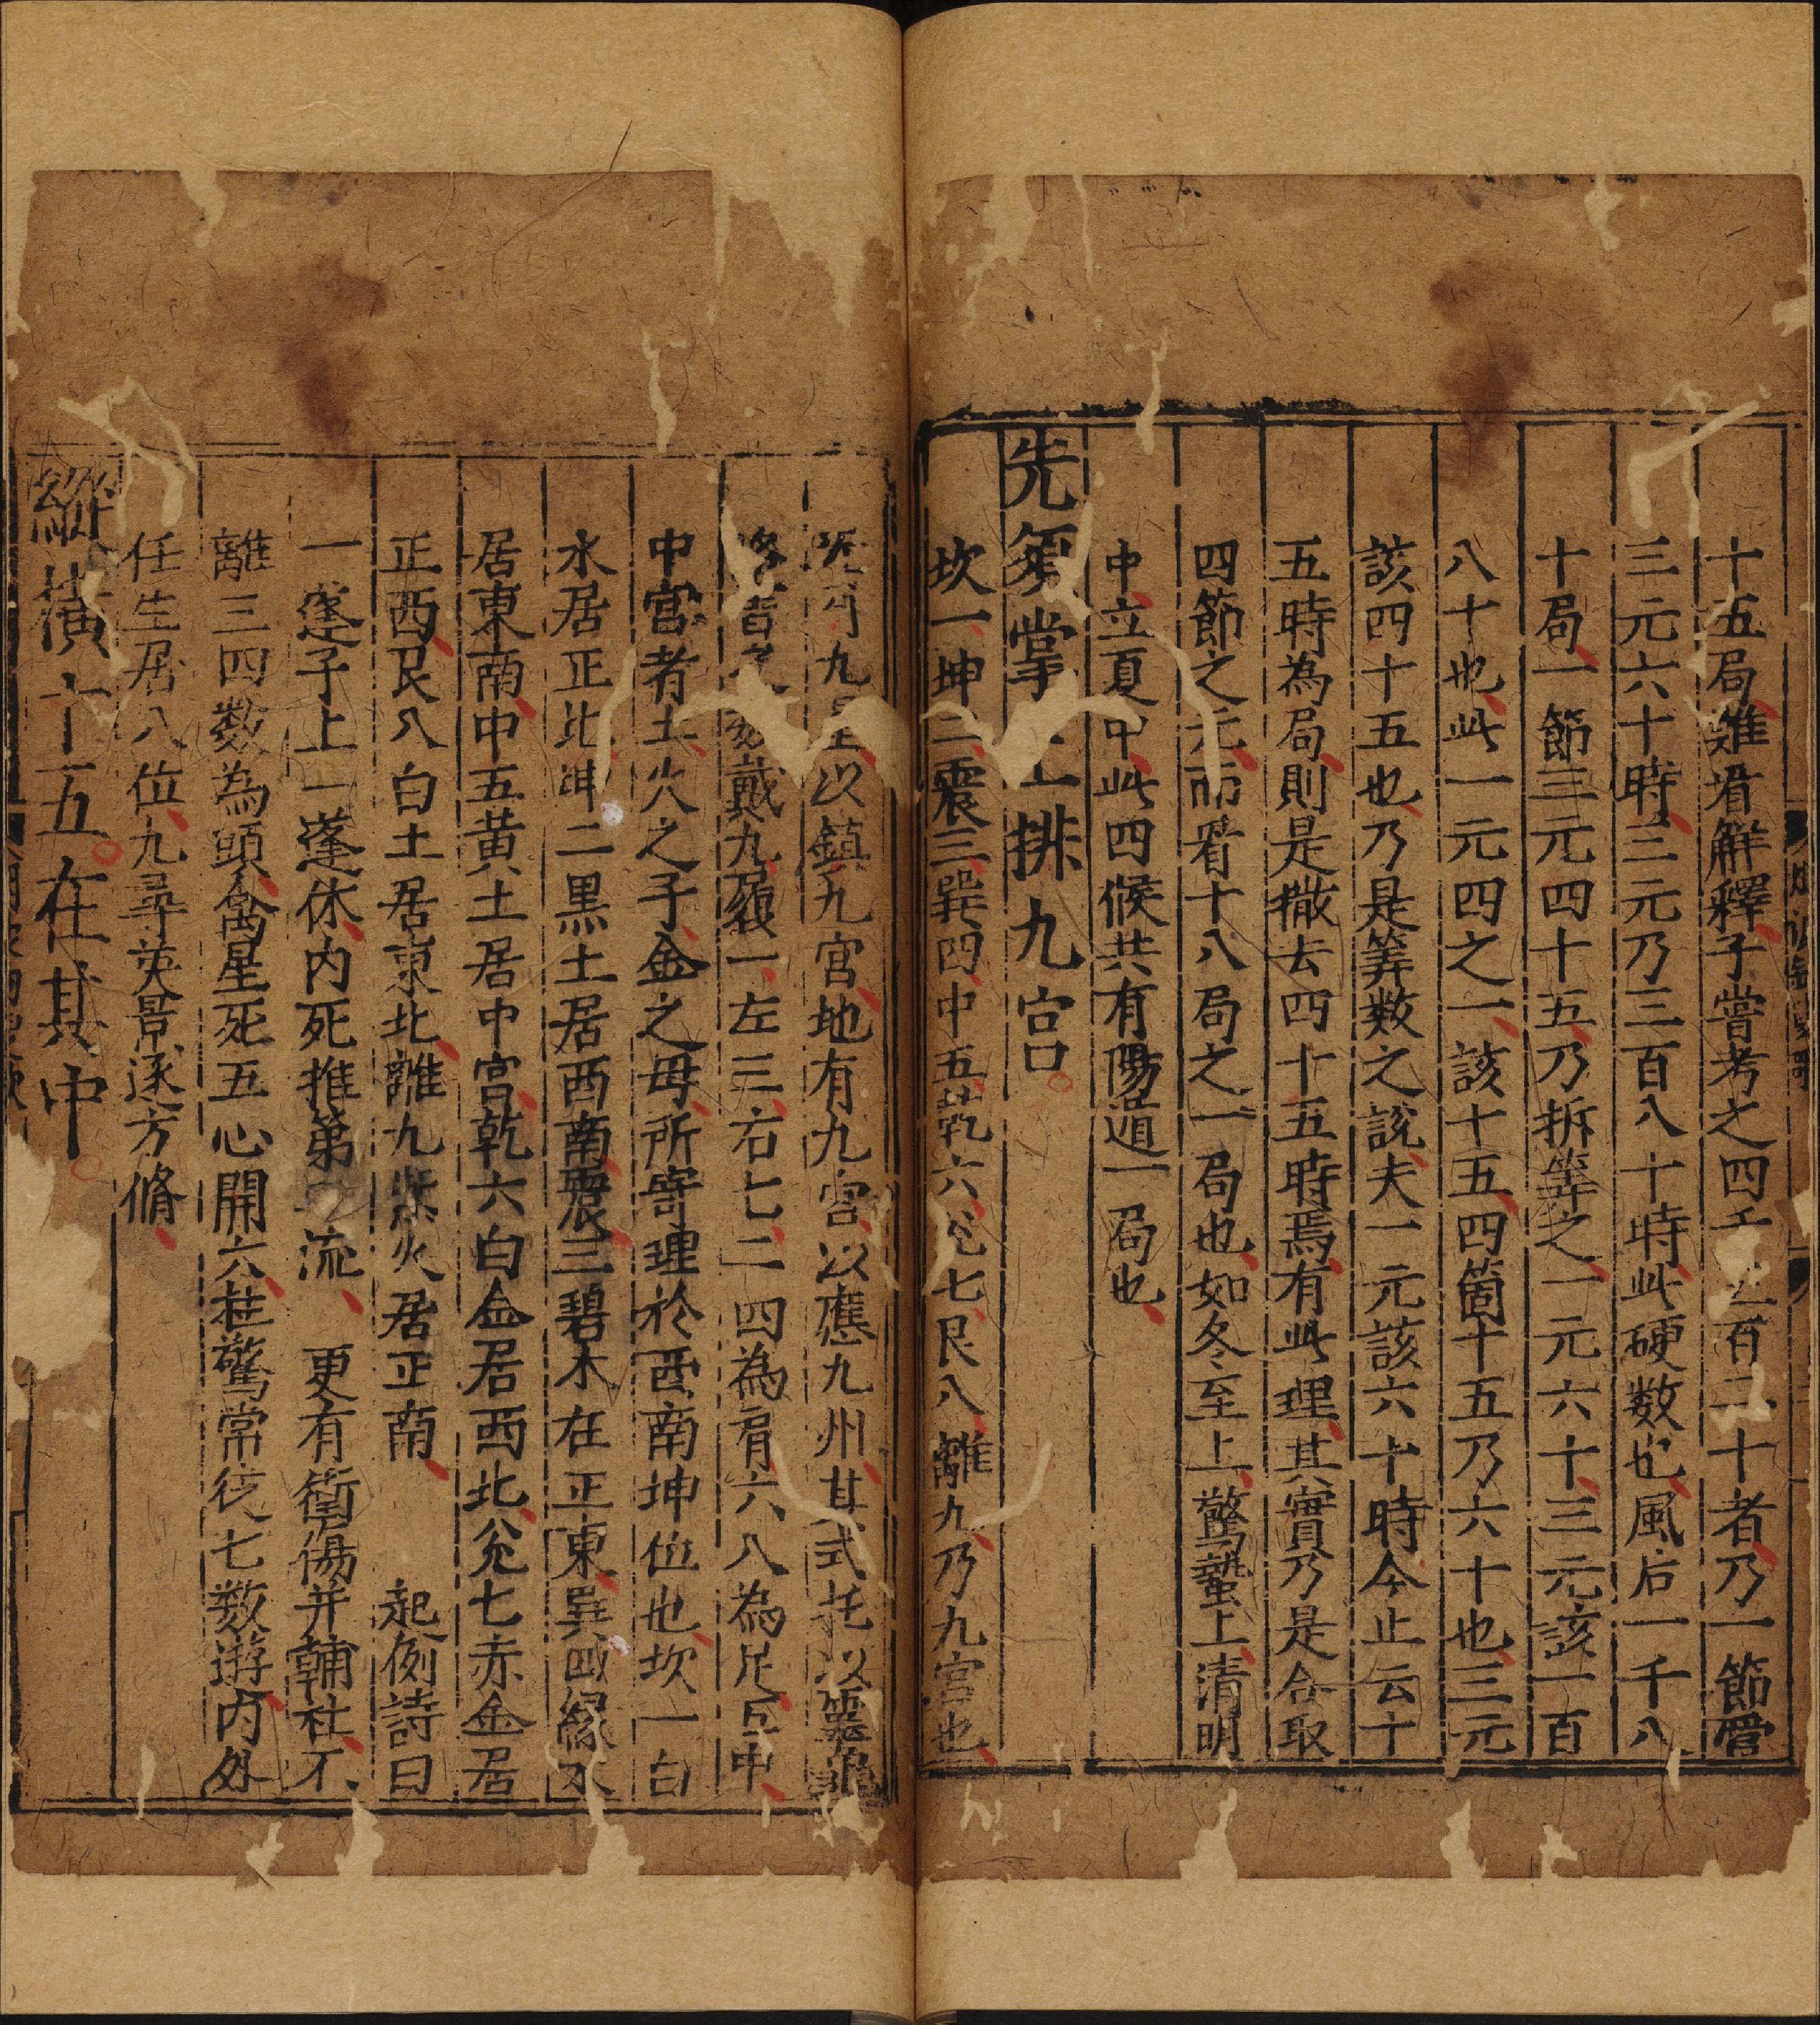 十五局雖有解釋子嘗考之四千三百二十者乃一節管
三元六十時三元乃三百八十時此硬数也風后一千八
十局一節三元四十五乃拆筭之一元六十三元該一百
八十也此一元四之一該十五四箇十五乃六十也三元
該四十五也乃是筭數之說夫一元該六十時今止云十
五時為局則是撒去四十五時焉有此理其實乃是合取
四節之元而看十八局之一局也如冬至上驚蟄上清明
中立夏中此四候共有陽遁一局也
先須掌上排九宮
坎一坤二震三巽四中五乾六兌七艮八離九乃九宮也
九星以鎮九宮地有九宮以應九州其式托以靈龜
戴九履一左三右七二四為肩六八為足五中
中宮者土火之子金之母所寄理於西南坤位也坎一白
水居正北坤二黑土居西南震三碧木在正東巽四綠木
居東南中五黃土居中宮乾六白金居西北兌七赤金居
正西艮八白土居東北離九紫火居正南 起例詩曰
一蓬子上一蓬休内死推第二流 更有衝傷并輔杜不
離三四数為頭禽星死五心開六柱驚常從七数遊内外
任生居八位九尋英景逐方脩
縱橫十五在其中